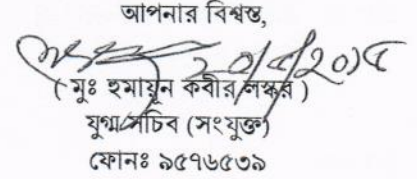 আপনার বিশ্বস্ত,
২০/৪/২০১৫
( মুঃ হুমায়ূন কবীর লস্কর )
যুগ্মসচিব (সংযুক্ত)
ফোনঃ ৯৫৭৬৫৩৯